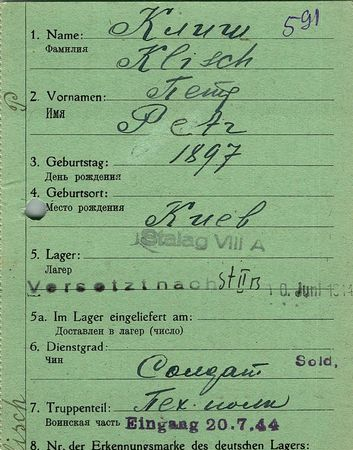 591
1. Name: Клиш
Фамилия Klisch
2. Vornamen: Петр
Имя Petr
3. Geburtstag: 1897
День рождения
4. Geburtsort:
Место рождения Киев
Stalag VIII A
5. Lager:
Лагер
Versetzt nach St II B 10. Juni 1944
5a. Im Lager eingeliefert am:
Доставлен в лагер (число)
6. Dienstgrad:
Чин Солдат Sold.
7. Truppenteil: Пех. полк
Воинская часть Eingang 20.7.44
8. Nr. der Erkennungsmarke des deutschen Lagers: